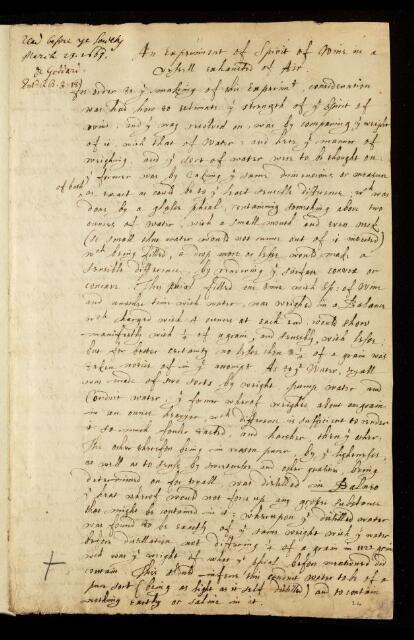 Read before ye Society
March 29. 1669.
De Goddard
An Experiment of Spirit of Wine in a
Vessell exhausted of Air
For order to ye making of this experimt, consideration
was had how to estimate ye strength of ye spirit of
wine: and yt was resolved on, was by comparing ye weight
of it, with that of Water: and here ye manner of
weighing, and ye sort of water were to be thought on:
ye former was by taking ye same dimensions or measure
of both
as exact as could be to ye least sensible difference. wch was
done by a glasse phial, containing something above two
ounces of water, with a small mouth and even neck
(so small that water would not runne out of it inverted)
wch being filled, a drop more or lesse would make a
sensible difference, by rendering ye surface convex or
concave. This phial filled one time with Sp: of Wine
and another time with water, was weighed in a Balance
wch charged with 4 ounces at each end, would show
manifestly with 1/8 of a grain, and sensibly, with lesse:
but for better certainty no lesse then 1/4 of a grain was
taken notice of in ye amongst. As to ye Water, tryall
was made of two sorts by weight, pump water and
Conduit water, ye former whereof weighed about one grain
in an ounce heavyer, wch difference is sufficient to render
it so much fouler tasted, and harsher, then ye other.
The other therefor being in reason purer, by ye lightnesse,
as well as to sense by smoothnes and other qualities, being
determined on for tryall was distilled in Balneo
yt heat whereof would not force up any grosse substance
that might be contained in it: whereupon ye distilled water
was found to be exactly of ye same weight with ye water
before distillation not differing 1/4 of a grain in 1122 grain
wch was ye weight of what ye phial before mentioned did
contain. This conduit water to be of a
pure sort (being as light as it self distilled) and to contain
nothing earthy or saline in it.
24